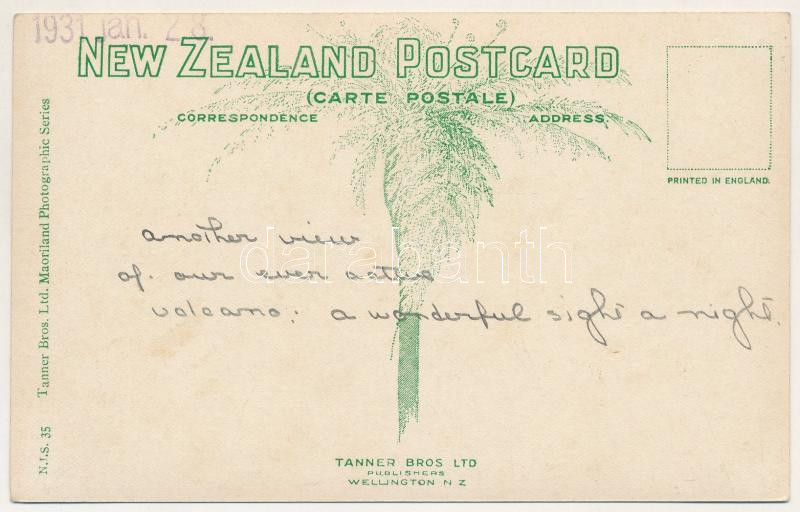 1931 jan. 28.
NEW ZEALAND POSTCARD
(CARTE POSTALE)
CORRESPONDENCE ADDRESS.
PRINTED IN ENGLAND.
another view
of our ever active
volcano: a wonderful sight a night.
darabanth
TANNER BROS LTD
PUBLISHERS
WELLINGTON N Z
N.I.S. 35 Tanner Bros. Ltd. Maoriland Photographic Series